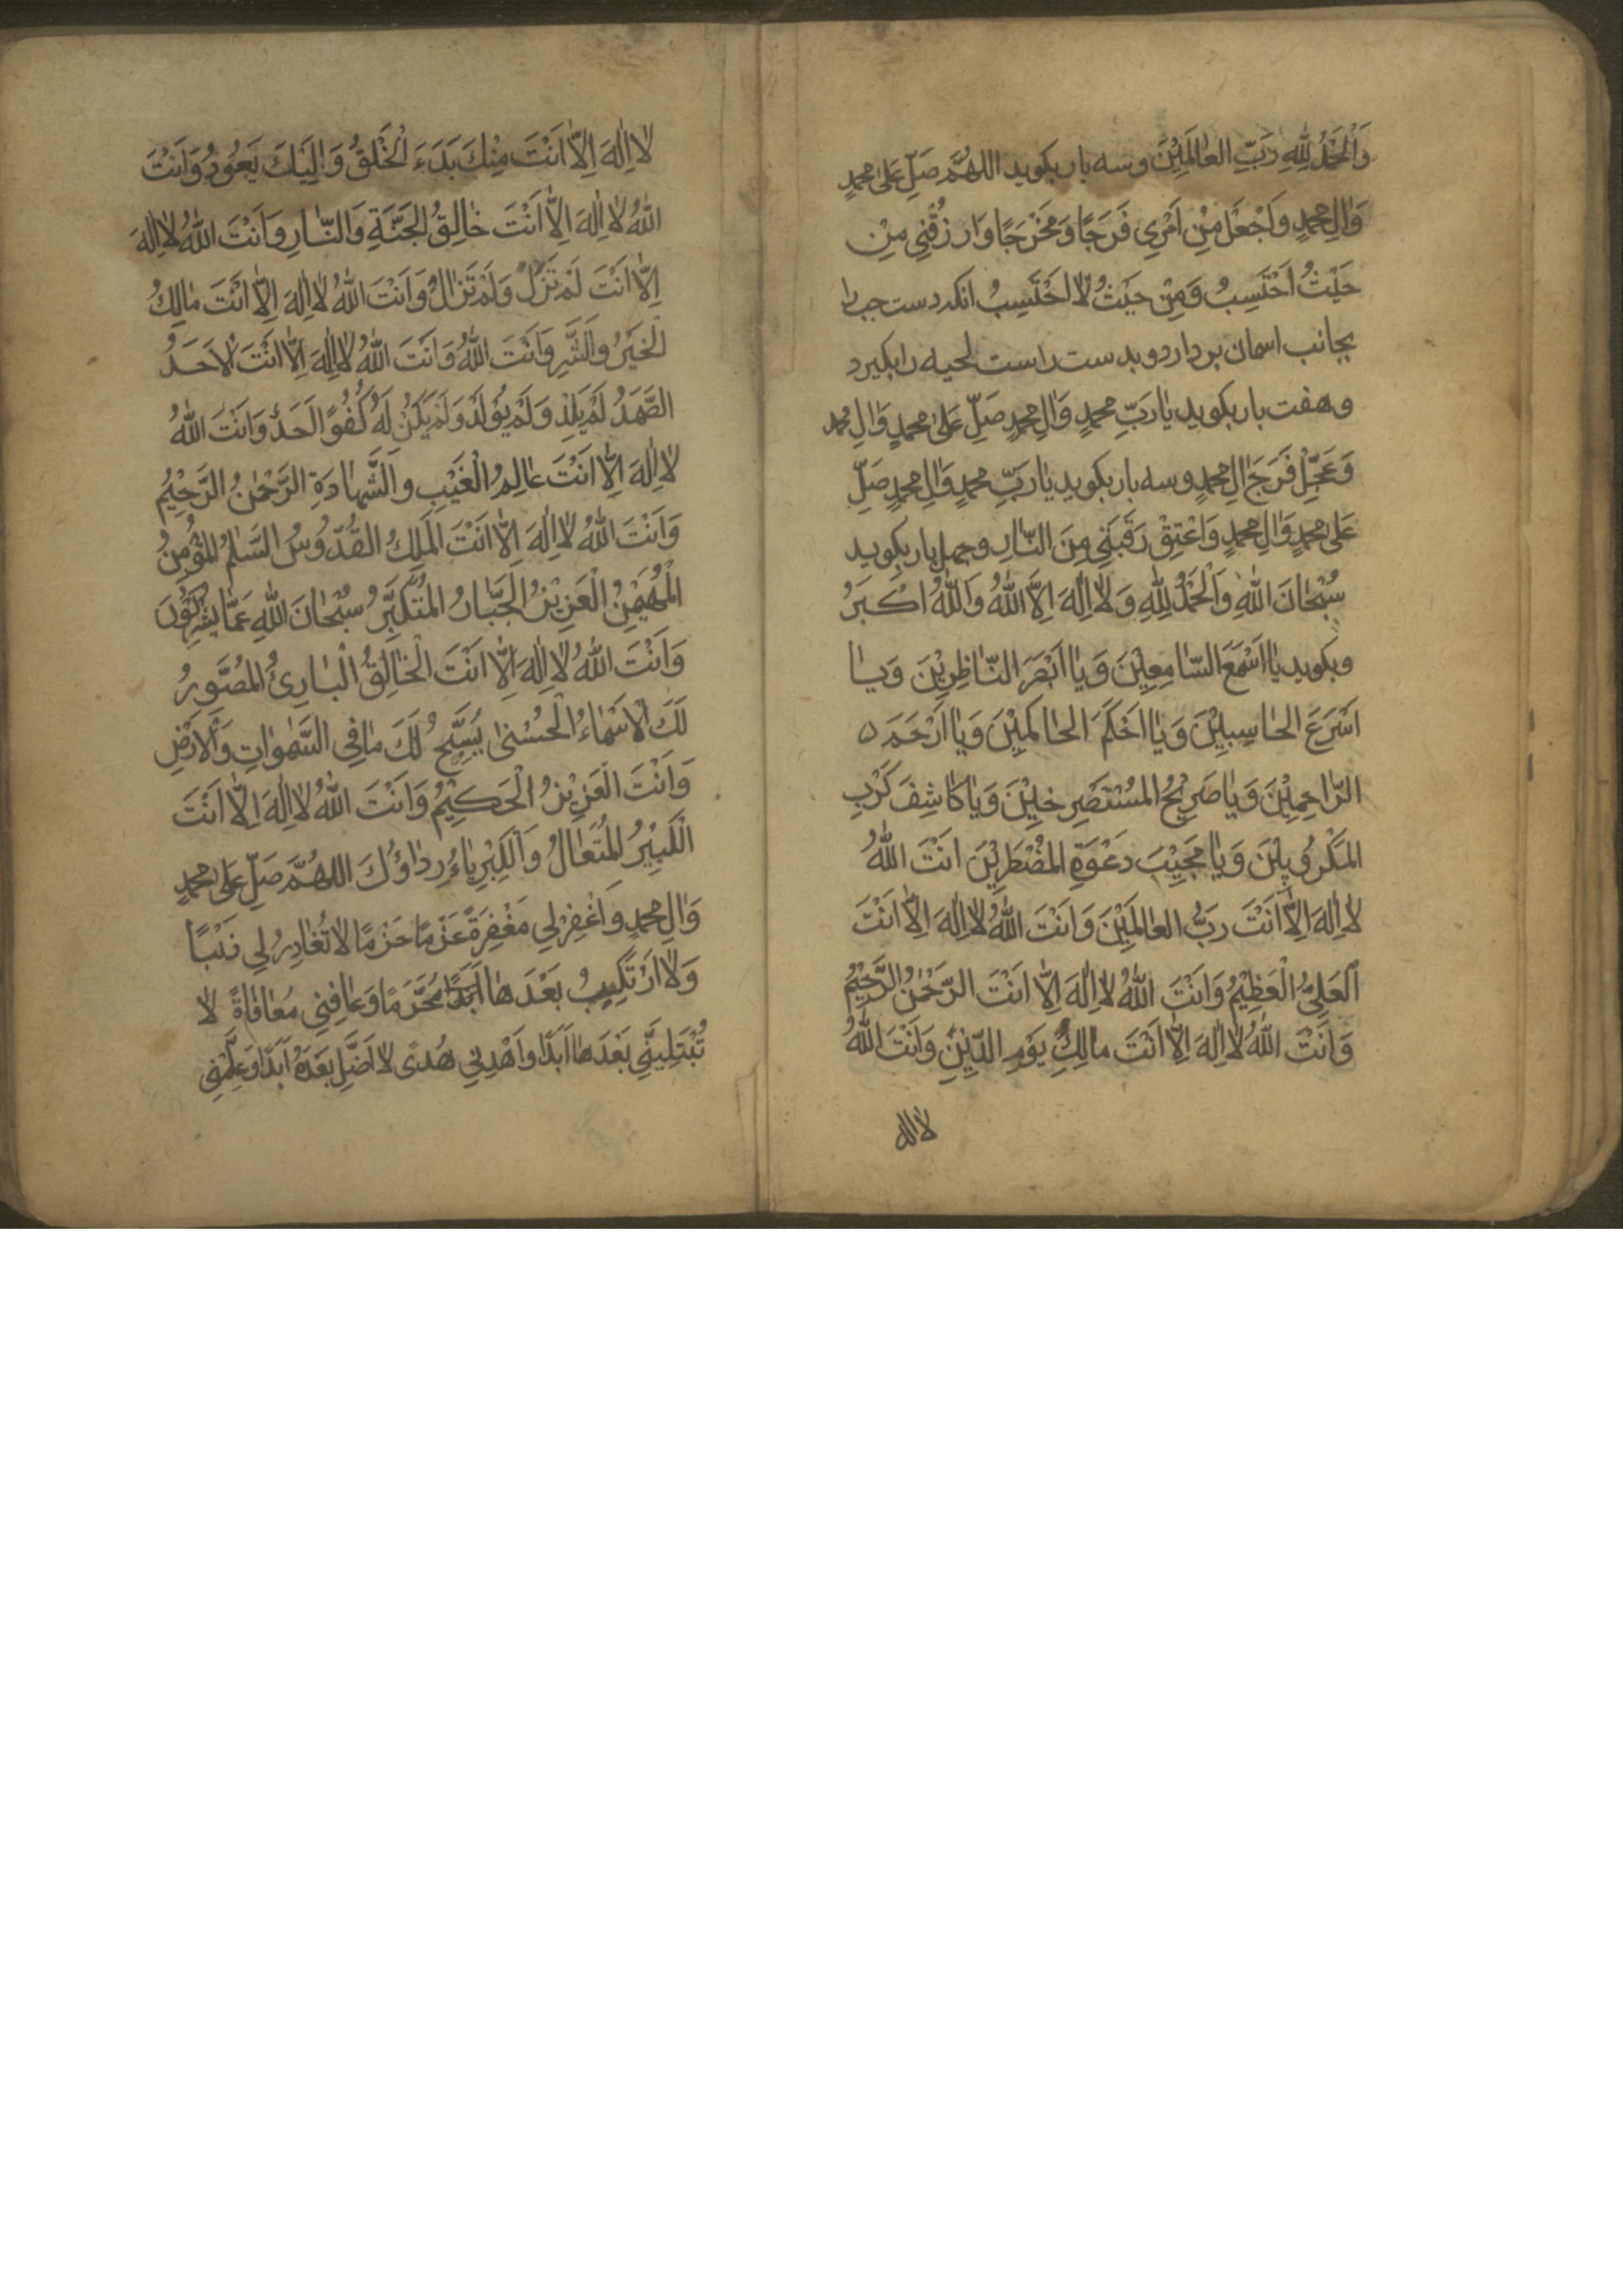 وَالْحَمْدُ لِلّٰهِ رَبِّ الْعٰالَمِيْنَ وسه بار بكويد اللهُمَّ صَلِّ عَلىٰ محمدٍ
وَاٰلِ محمدٍ وَاجْعَلْ مِنْ اَمْرِي فَرَجًا وَمَخْرَجًا وَارْزُقْنِي مِنْ
حَيْثُ اَحْتَسِبُ وَمِنْ حَيْثُ لاٰ اَحْتَسِبُ انكه دست جب را
بجانب اسمان بردارد وبدست راست لحيه را بكيرد
وهفت بار بكويد يٰا رَبِّ محمدٍ وَاٰلِ محمدٍ صَلِّ عَلىٰ محمدٍ وَاٰلِ محمد
وَعَجِّلْ فَرَجَ اٰلِ محمدٍ وسه بار بكويد يٰا رَبِّ محمدٍ وَاٰلِ محمدٍ صَلِّ
عَلىٰ محمدٍ وَاٰلِ محمدٍ وَاعْتِقْ رَقَبَتِي مِنَ النّٰارِ وجهل بار بكويد
سُبْحٰانَ اللّٰهِ وَالْحَمْدُ لِلّٰهِ وَلاٰ اِلٰهَ اِلاَّ اللّٰهُ وَاللّٰهُ اَكْبَرُ
وبكويد يٰا اَسْمَعَ السّٰامِعِيْنَ وَيٰا اَبْصَرَ النّٰاظِرِيْنَ وَيٰا
اَسْرَعَ الحٰاسِبِيْنَ وَيٰا اَحْكَمَ الحٰاكمِيْنَ وَيٰا اَرْحَمَ
الرّٰاحِمِيْنَ وَيٰا صَرِيْخَ المُسْتَصْرِخِيْنَ وَيٰا كٰاشِفَ كَرْبِ
المَكْرُوبِيْنَ وَيٰا مُجِيْبَ دَعْوَةِ المُضْطَرِّيْنَ اَنْتَ اللّٰهُ
لاٰ اِلٰهَ اِلاّٰ اَنْتَ رَبُّ العٰالَمِيْنَ وَاَنْتَ اللّٰهُ لاٰ اِلٰهَ اِلاّٰ اَنْتَ
اَلعَلِيُّ الْعَظِيْمُ وَاَنْتَ اللّٰهُ لاٰ اِلٰهَ اِلاّٰ اَنْتَ الرَّحْمٰنُ الرَّحِيْمُ
وَاَنْتَ اللّٰهُ لاٰ اِلٰهَ اِلاّٰ اَنْتَ مٰالِكِ يَوْمِ الدِّيْنِ وَاَنْتَ اللّٰهُ
لاٰ اله
لاٰ اِلٰهَ اِلاّٰ اَنْتَ مِنْكَ بَدَءَ الْخَلْقُ وَاِلَيْكَ يَعُوْدُ وَاَنْتَ
اللّٰهُ لاٰ اِلٰهَ اِلاّٰ اَنْتَ خٰالِقُ الجَنَّةِ وَالنّٰارِ وَاَنْتَ اللّٰهُ لاٰ اِلٰهَ
اِلاّٰ اَنْتَ لَمْ تَزَلْ وَلَمْ تَزٰالُ وَاَنْتَ اللّٰهُ لاٰ اِلٰهَ اِلاّٰ اَنْتَ مٰالِكُ
الْخَيْرُ وَالشَّرِّ وَاَنْتَ اللّٰهُ وَاَنْتَ اللّٰهُ لاٰ اِلٰهَ اِلاّٰ اَنْتَ الاَحَدُ
الصَّمَدُ لَمْ يَلِدْ وَلَمْ يُوْلَدْ وَلَمْ يَكُنْ لَهُ كُفُوًا اَحَدٌ وَاَنْتَ اللّٰهُ
لاٰ اِلٰهَ اِلاّٰ اَنْتَ عٰالِمُ الْغَيْبِ وَالشَّهٰادَةِ الرَّحْمٰنُ الرَّحِيْمُ
وَاَنْتَ اللّٰهُ لاٰ اِلٰهَ اِلاّٰ اَنْتَ المَلِكُ القُدُّوْسُ السَّلٰمُ المُؤْمِنُ
الْمُهَيْمِنُ الْعَزِيْزُ الْجَبّٰارُ المُتَكَبِّرُ سُبْحٰانَ اللّٰهِ عَمّٰا يُشْرِكُوْنَ
وَاَنْتَ اللّٰهُ لاٰ اِلٰهَ اِلاّٰ اَنْتَ الْخٰالِقُ الْبٰارِئُ المُصَّوِرُ
لَكَ الْاَسْمٰاءُ الْحُسْنىٰ يُسَبِّحُ لَكَ مٰا فِي السَّمٰوٰاتِ وَالْاَرْضِ
وَاَنْتَ الْعَزِيْزُ الْحَكِيْمُ وَاَنْتَ اللّٰهُ لاٰ اِلٰهَ اِلاّٰ اَنْتَ
الْكَبِيْرُ المُتَعٰالُ وَالْكِبْرِيٰاءُ رِدٰاؤُكَ اللهُمَّ صَلِّ عَلىٰ محمدٍ
وَاٰلِ محمدٍ وَاغْفِرْلِي مَغْفِرَةً عَزْمًا حَزْمًا لاٰ تُغٰادِرُ لِي ذَنْبًا
وَلاٰ اَرْتَكِبُ بَعْدَهٰا اَبَدًا مُحَرَّمًا وَعٰافِنِي مُعٰافٰاةً لاٰ
تُبْتَلِيَنِّي بَعْدَهٰا اَبَدًا وَاهْدِنِي هُدىً لاٰ اَضَّلِ بَعْدَهُ اَبَدًا وَعَلِّمْنِي